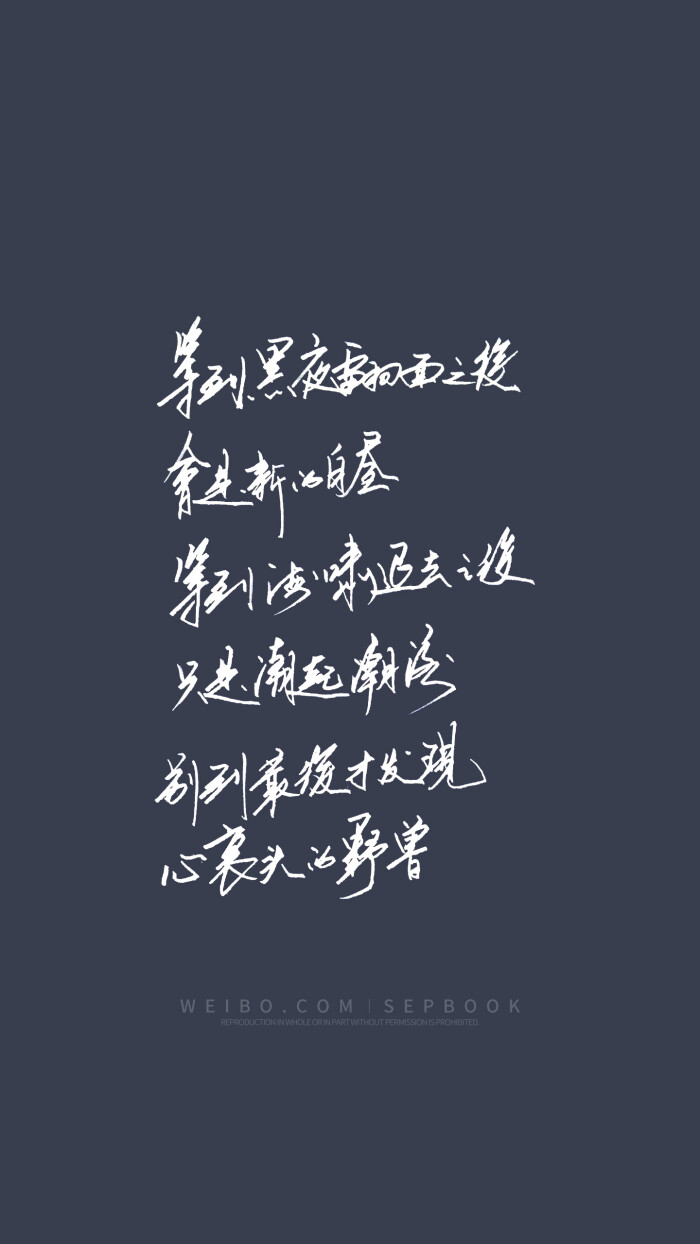 等到黑夜翻面之後
會是新的白昼
等到海啸退去之後
只是潮起潮落
别到最後才发現
心裏头的野兽
WEIBO.COM | SEPBOOK
REPRODUCTION IN WHOLE OR IN PART WITHOUT PERMISSION IS PROHIBITED.